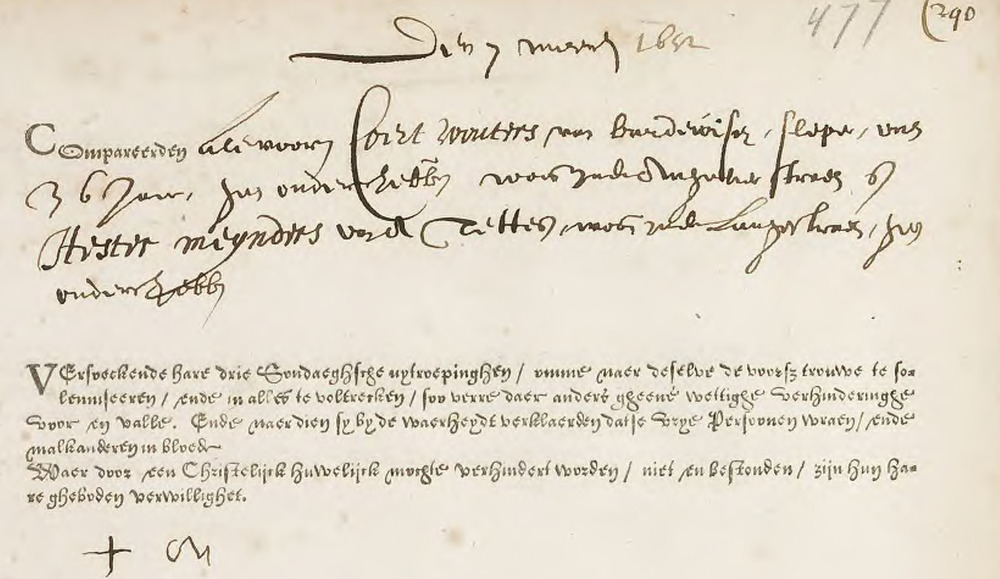 477 (290
Den 7 meert 1652
Compareerden als vooren Coert Wouters van
36 Jaer, geen ouders hebb woont in de straet &
Hester Meynders van Tettes, woont in de Langestraet, geen
ouders hebb
VErsoeckende hare drie Sondaeghsche uytroepinghen / omme naer deselve de voorsz trouwe te so-
lemniseeren / ende in alles te voltrecken / soo verre daer anders gheene wettighe verhinderinghe
voor en valle. Ende naer dien sy by de waerheydt verklaerden dat se vrye Persoonen waren / ende
malkanderen in bloede
Waer door een Christelijck huwelijck mochte verhindert worden / niet en bestonden / zijn hun ha-
re gheboden verwillighet.